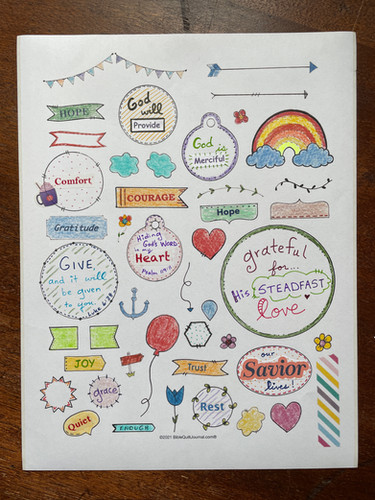 HOPE
God
will
Provide
God is
Merciful
Comfort
COURAGE
Hope
Gratitude
Hiding
God's WORD
in my
Heart
Psalm 119:11
grateful
for...
His STEADFAST
love
GIVE,
and it will
be given
to you.
Luke 6:38
JOY
Trust
our
Savior
lives
grace
Rest
Quiet
ENOUGH